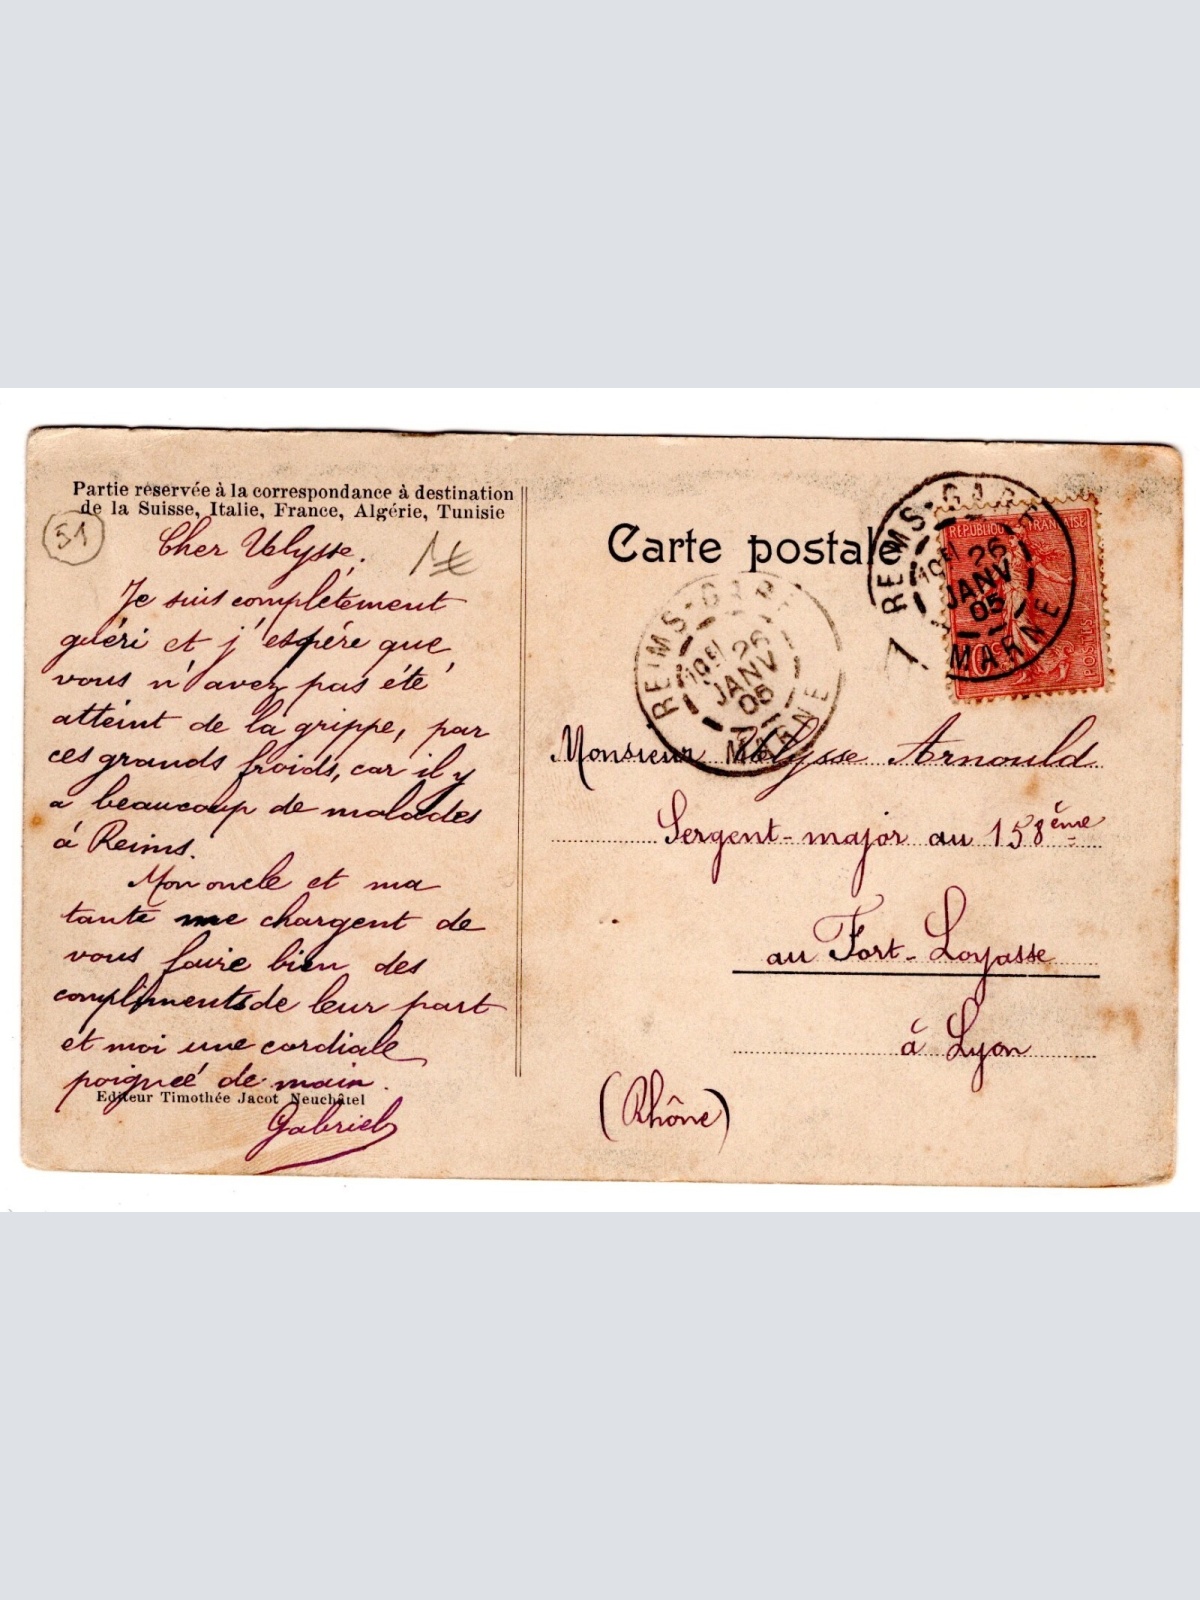 Partie réservée à la correspondance à destination
de la Suisse, Italie, France, Algérie, Tunisie
51
Cher Ulysse.
Je suis complètement
guéri et j'espère que
vous n'avez pas été
atteint de la grippe, par
ces grands froids, car il y
a beaucoup de malades
à Reims.
Mon oncle et ma
tante me chargent de
vous faire bien des
compliments de leur part
et moi une cordiale
poignée de main.
Editeur Timothée Jacot Neuchâtel
Gabriel
Carte postale
REIMS-GARE
26
JANV
05
MARNE
REIMS-GARE
26
JANV
05
MARNE
REPUBLIQUE FRANÇAISE
POSTES
10c
Monsieur Ulysse Arnould
Sergent-major au 158ème
au Fort-Loyasse
à Lyon
(Rhône)